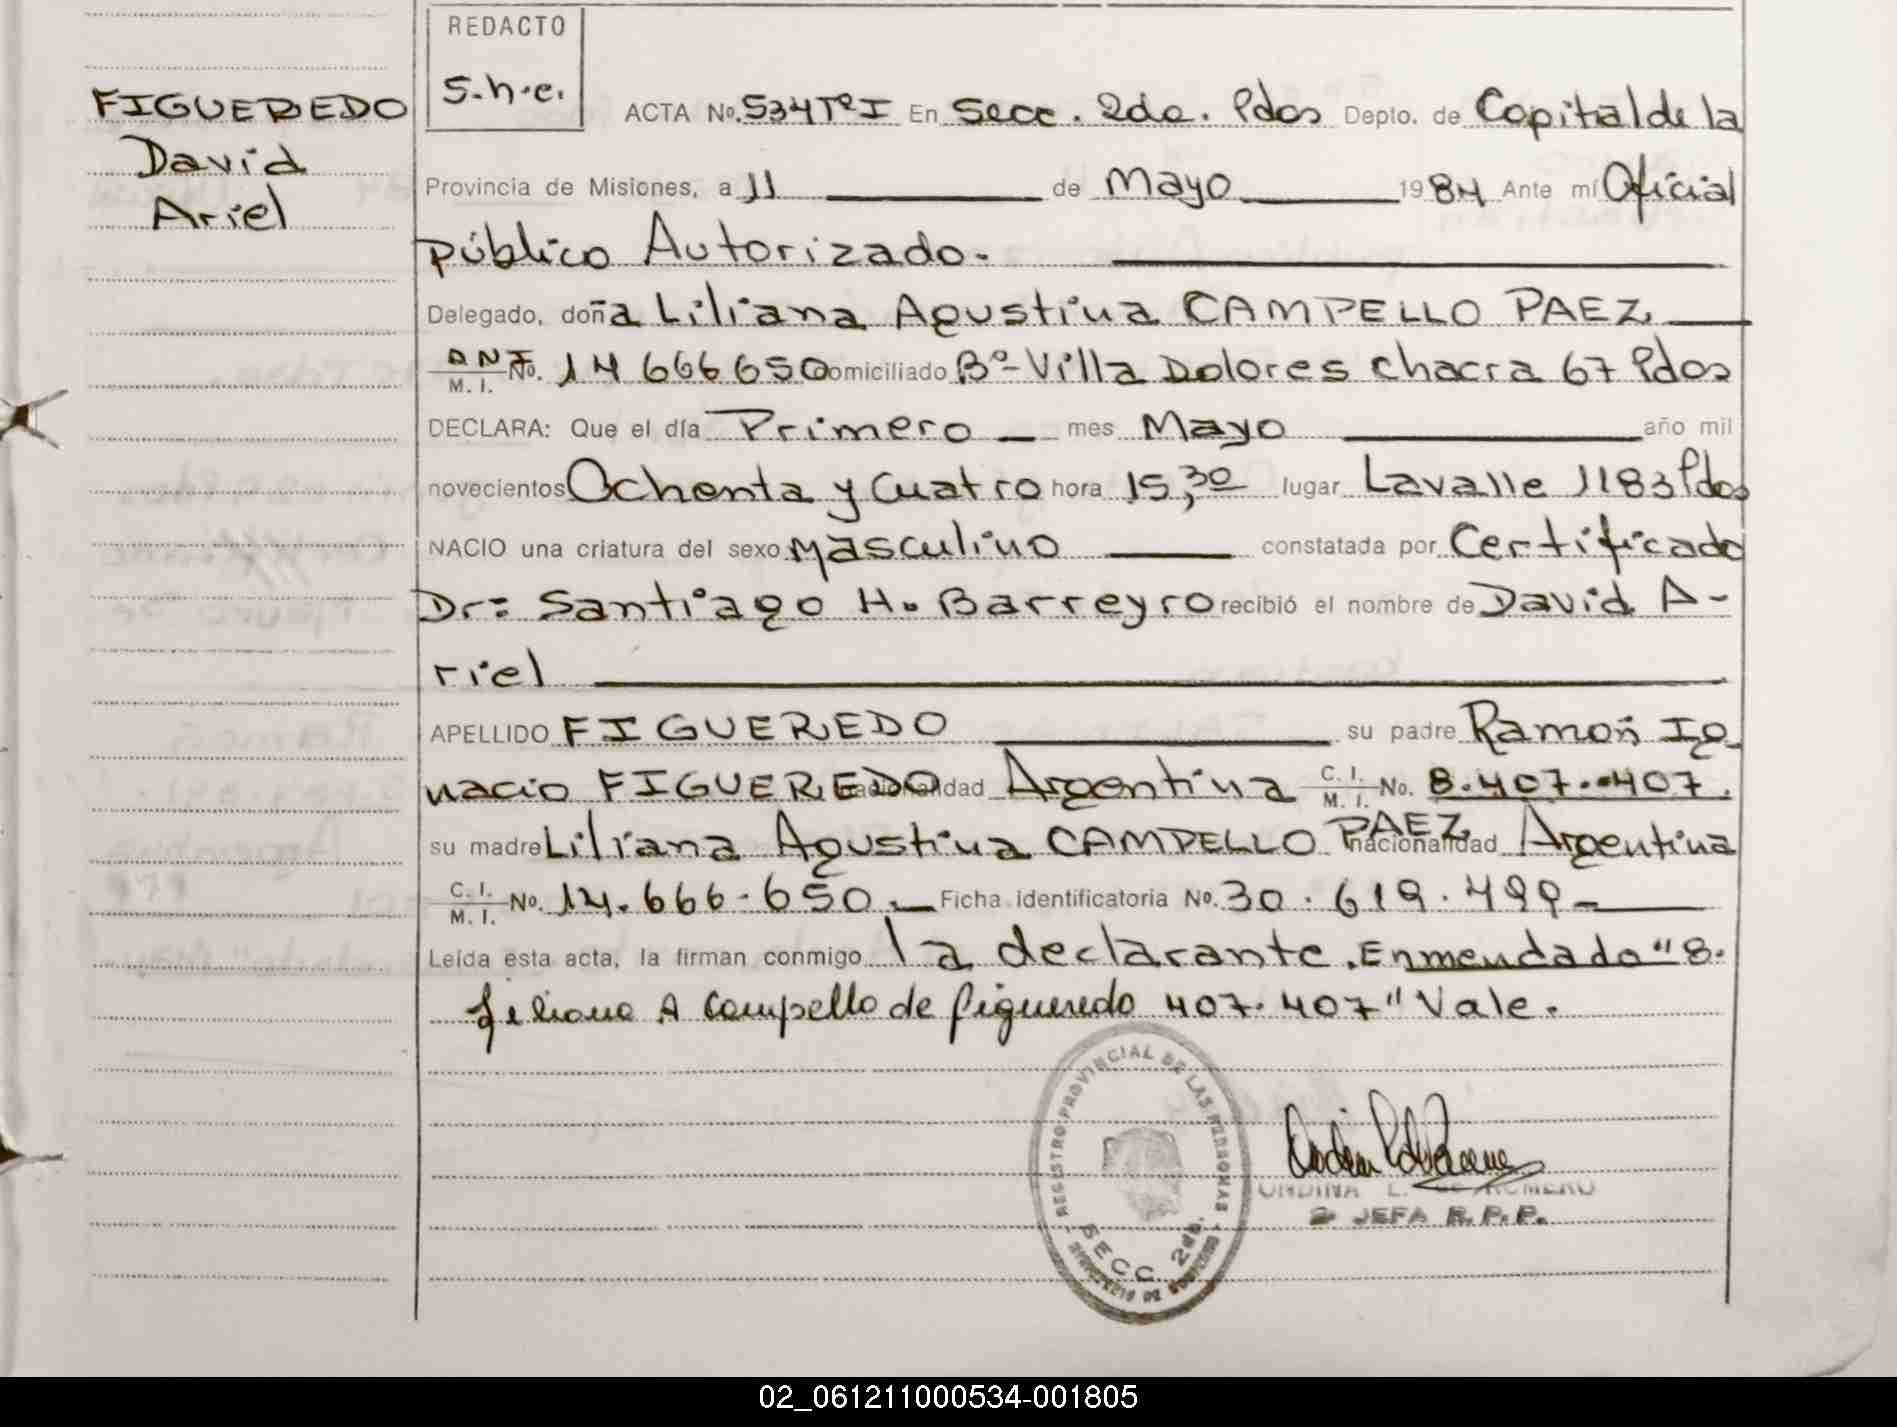 REDACTO
S.h.e.
FIGUEREDO
David
Ariel
ACTA No. 534 Tº I En Secc. 2da. Pdas Depto. de Capital de la
Provincia de Misiones, a 11 de Mayo 1984 Ante mí Oficial
público Autorizado.
Delegado, doña Liliana Agustina CAMPELLO PAEZ
DNI No. 14 666 650 domiciliado Bº-Villa Dolores chacra 67 Pdas
M. I.
DECLARA: Que el día Primero mes Mayo año mil
novecientos Ochenta y Cuatro hora 15,30 lugar Lavalle 1183 Pdas
NACIO una criatura del sexo Masculino constatada por Certificado
Dr: Santiago H. Barreyro recibió el nombre de David A-
riel
APELLIDO FIGUEREDO su padre Ramón Ig
nacio FIGUEREDO nacionalidad Argentina C. I. M. I. No. 8.407.407.
su madre Liliana Agustina CAMPELLO PAEZ nacionalidad Argentina
C. I. M. I. No. 14.666.650. Ficha identificatoria No. 30.619.499
Leída esta acta, la firman conmigo la declarante. Enmendado "8.
Liliana A Campello de Figueredo 407.407" Vale.
REGISTRO PROVINCIAL DE LAS PERSONAS
SECC. 2da.
ONDINA E. DE ROMERO
JEFA R.P.P.
02_061211000534-001805